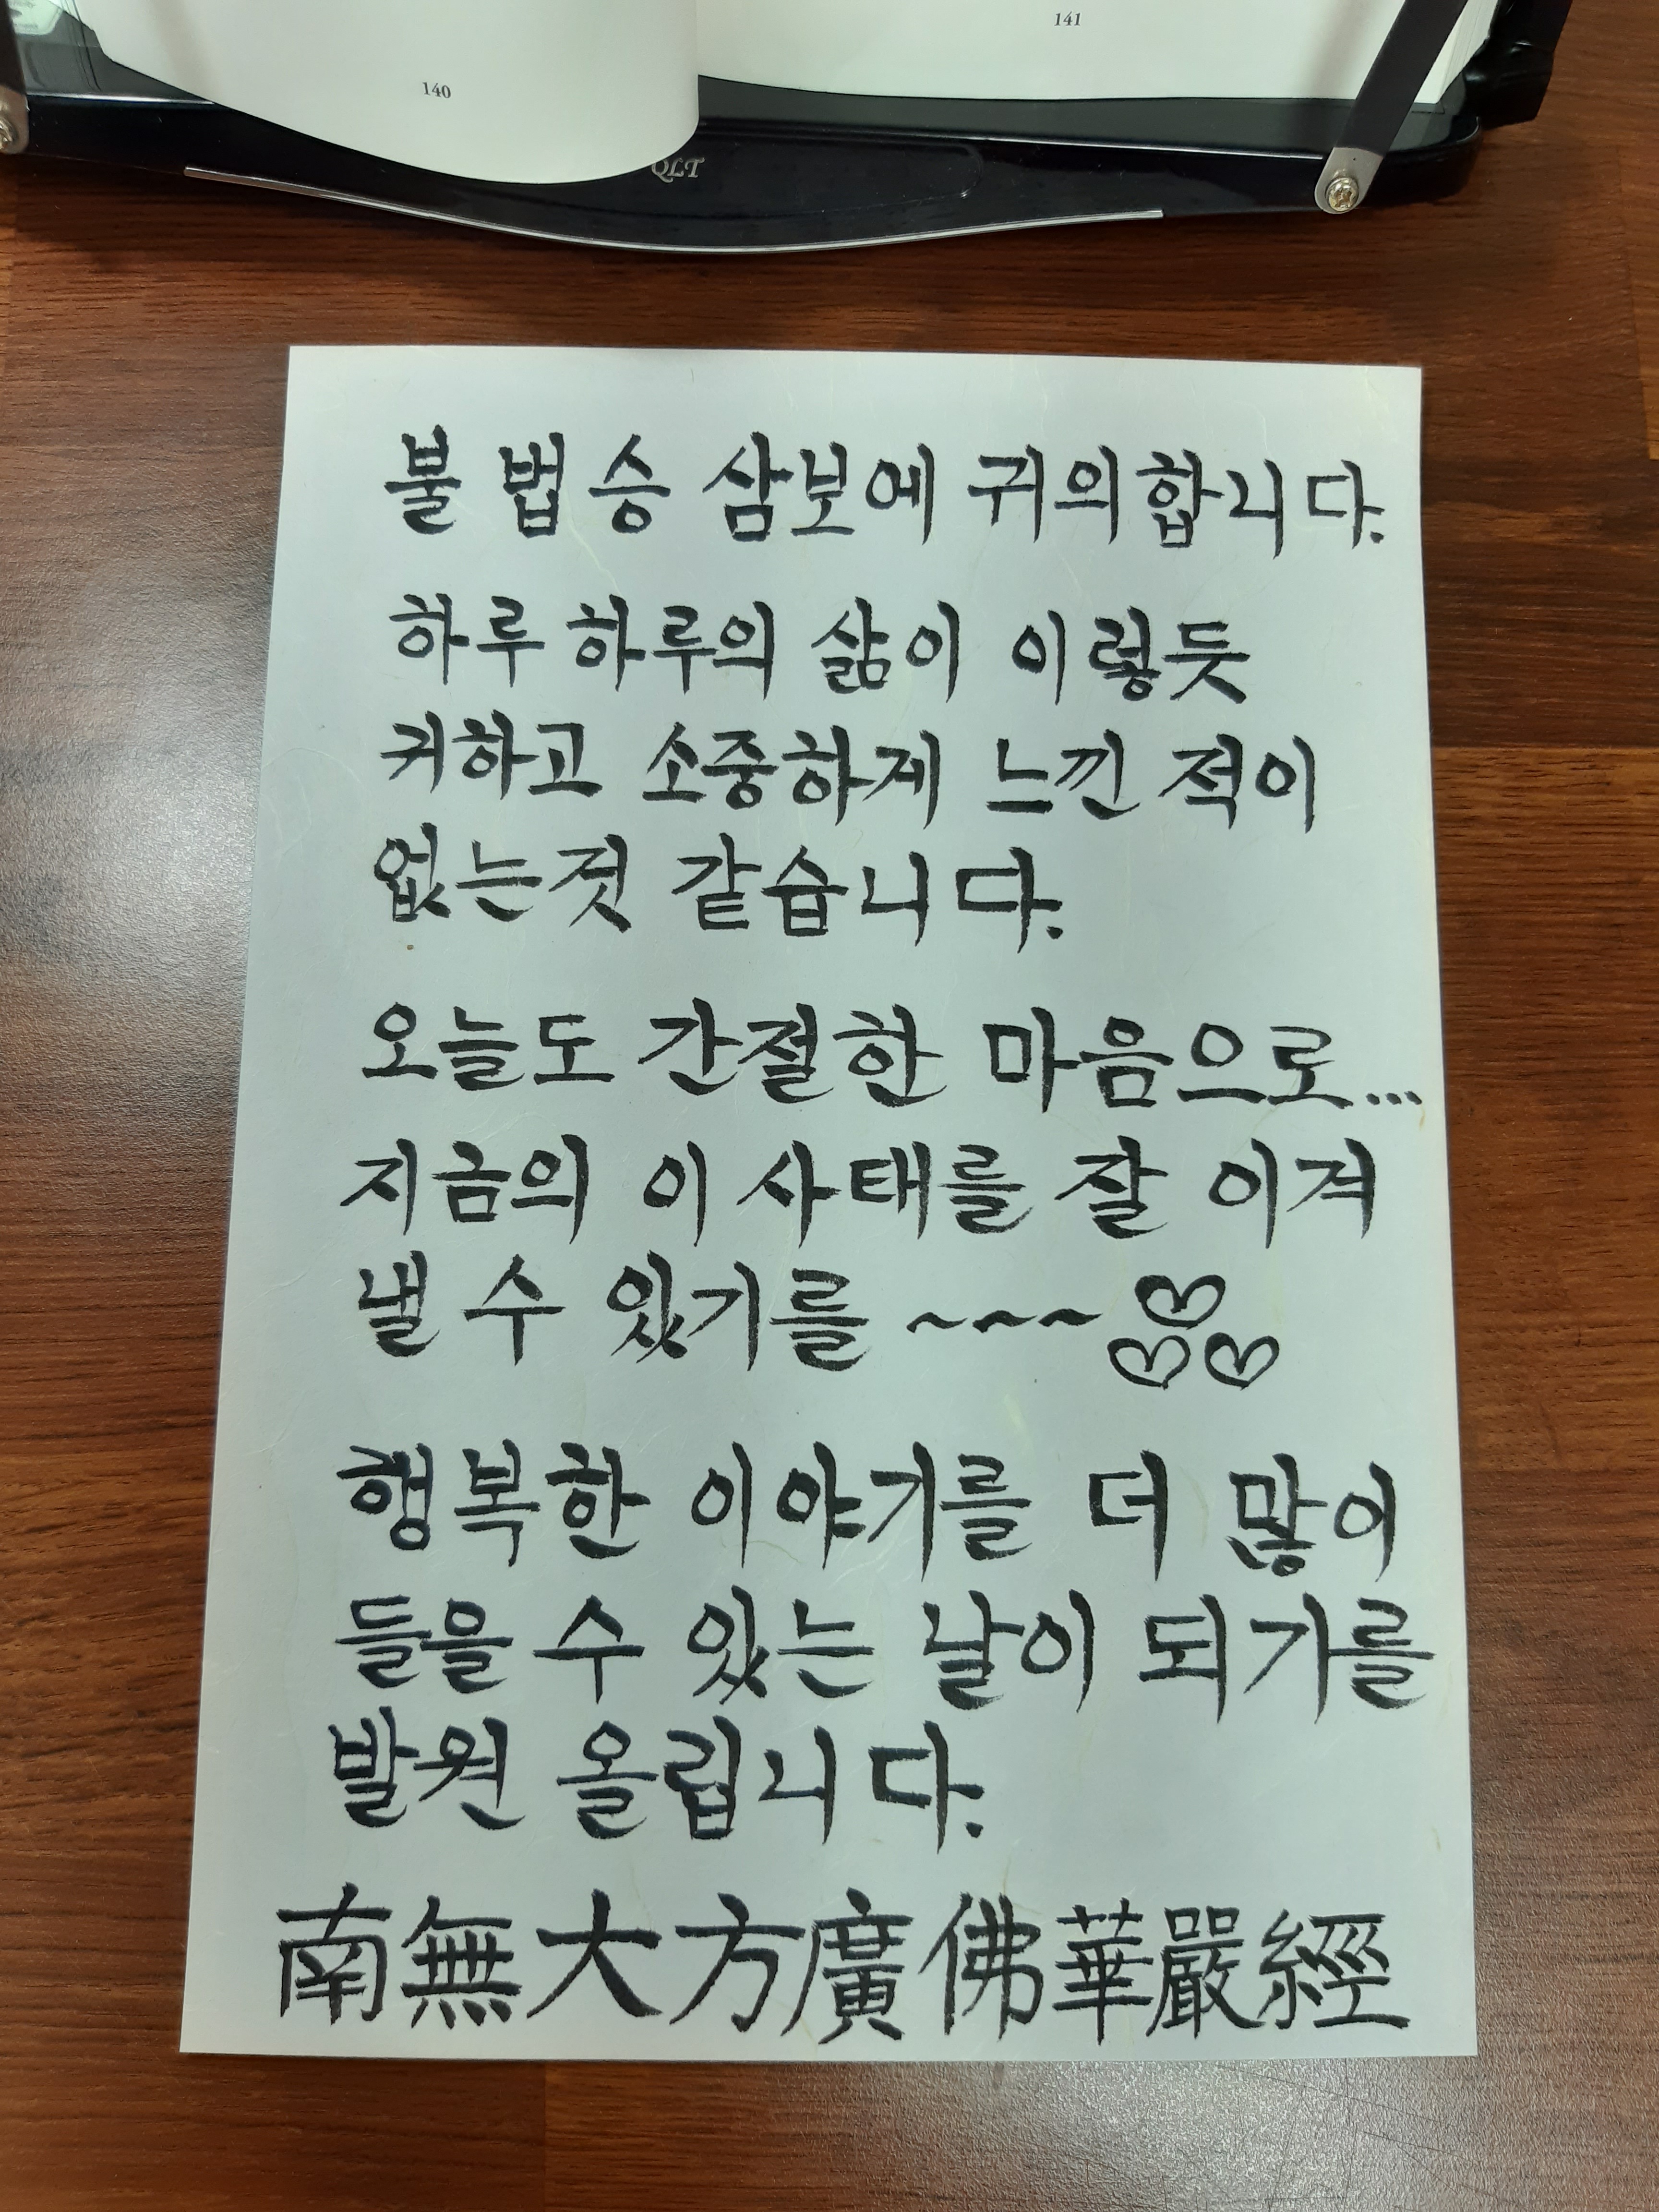 140
141
QLT
불 법 승 삼보에 귀의합니다.
하루 하루의 삶이 이렇듯
귀하고 소중하게 느낀 적이
없는것 같습니다.
오늘도 간절한 마음으로...
지금의 이 사태를 잘 이겨
낼 수 있기를 ~~~♡♡♡
행복한 이야기를 더 많이
들을 수 있는 날이 되기를
발원 올립니다.
南無大方廣佛華嚴經